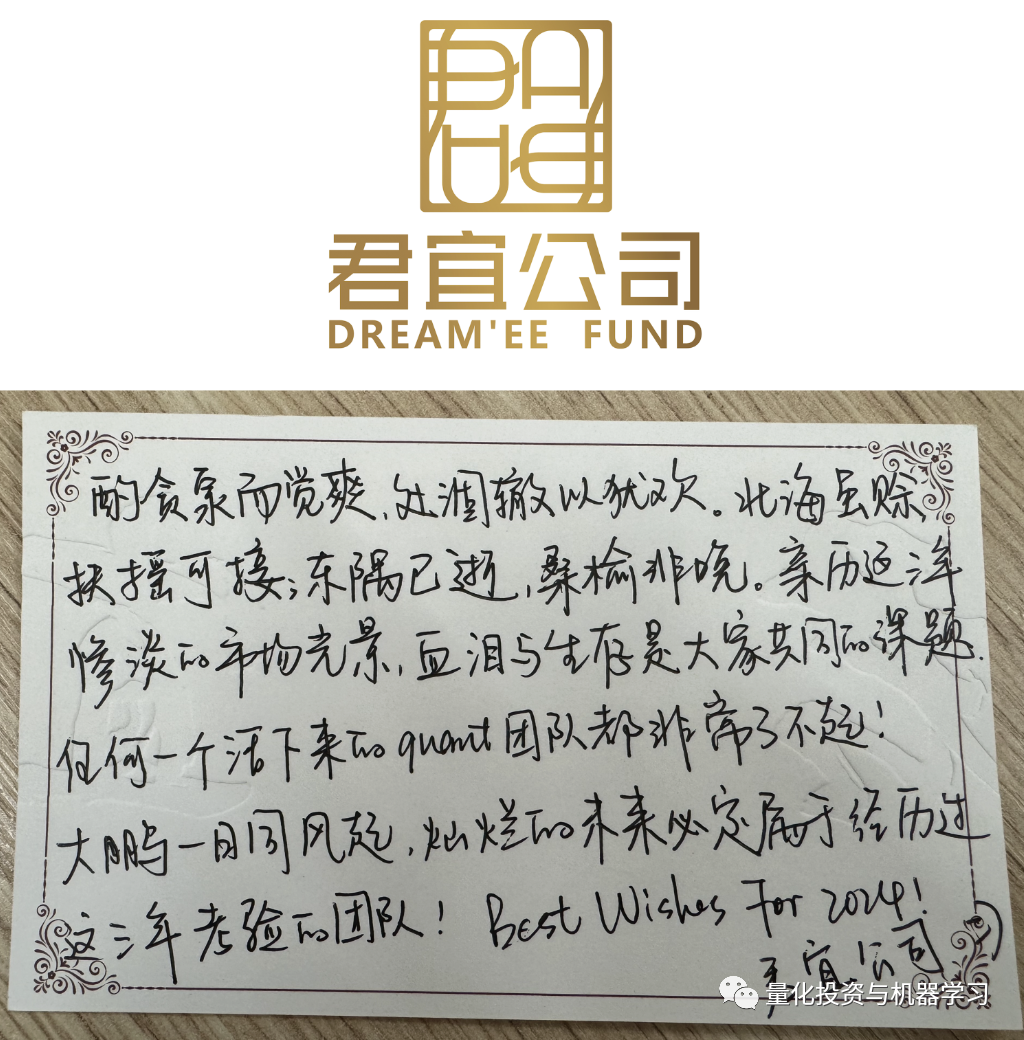 君宜公司
DREAM'EE FUND
酌贪泉而觉爽,处涸辙以犹欢。北海虽赊,
扶摇可接;东隅已逝,桑榆非晚。亲历这三年
惨淡的市场光景,血泪与生存是大家共同的课题.
任何一个活下来的quant团队都非常了不起!
大鹏一日同风起,灿烂的未来必定属于经历过
这三年考验的团队! Best Wishes For 2024!
君宜公司
量化投资与机器学习